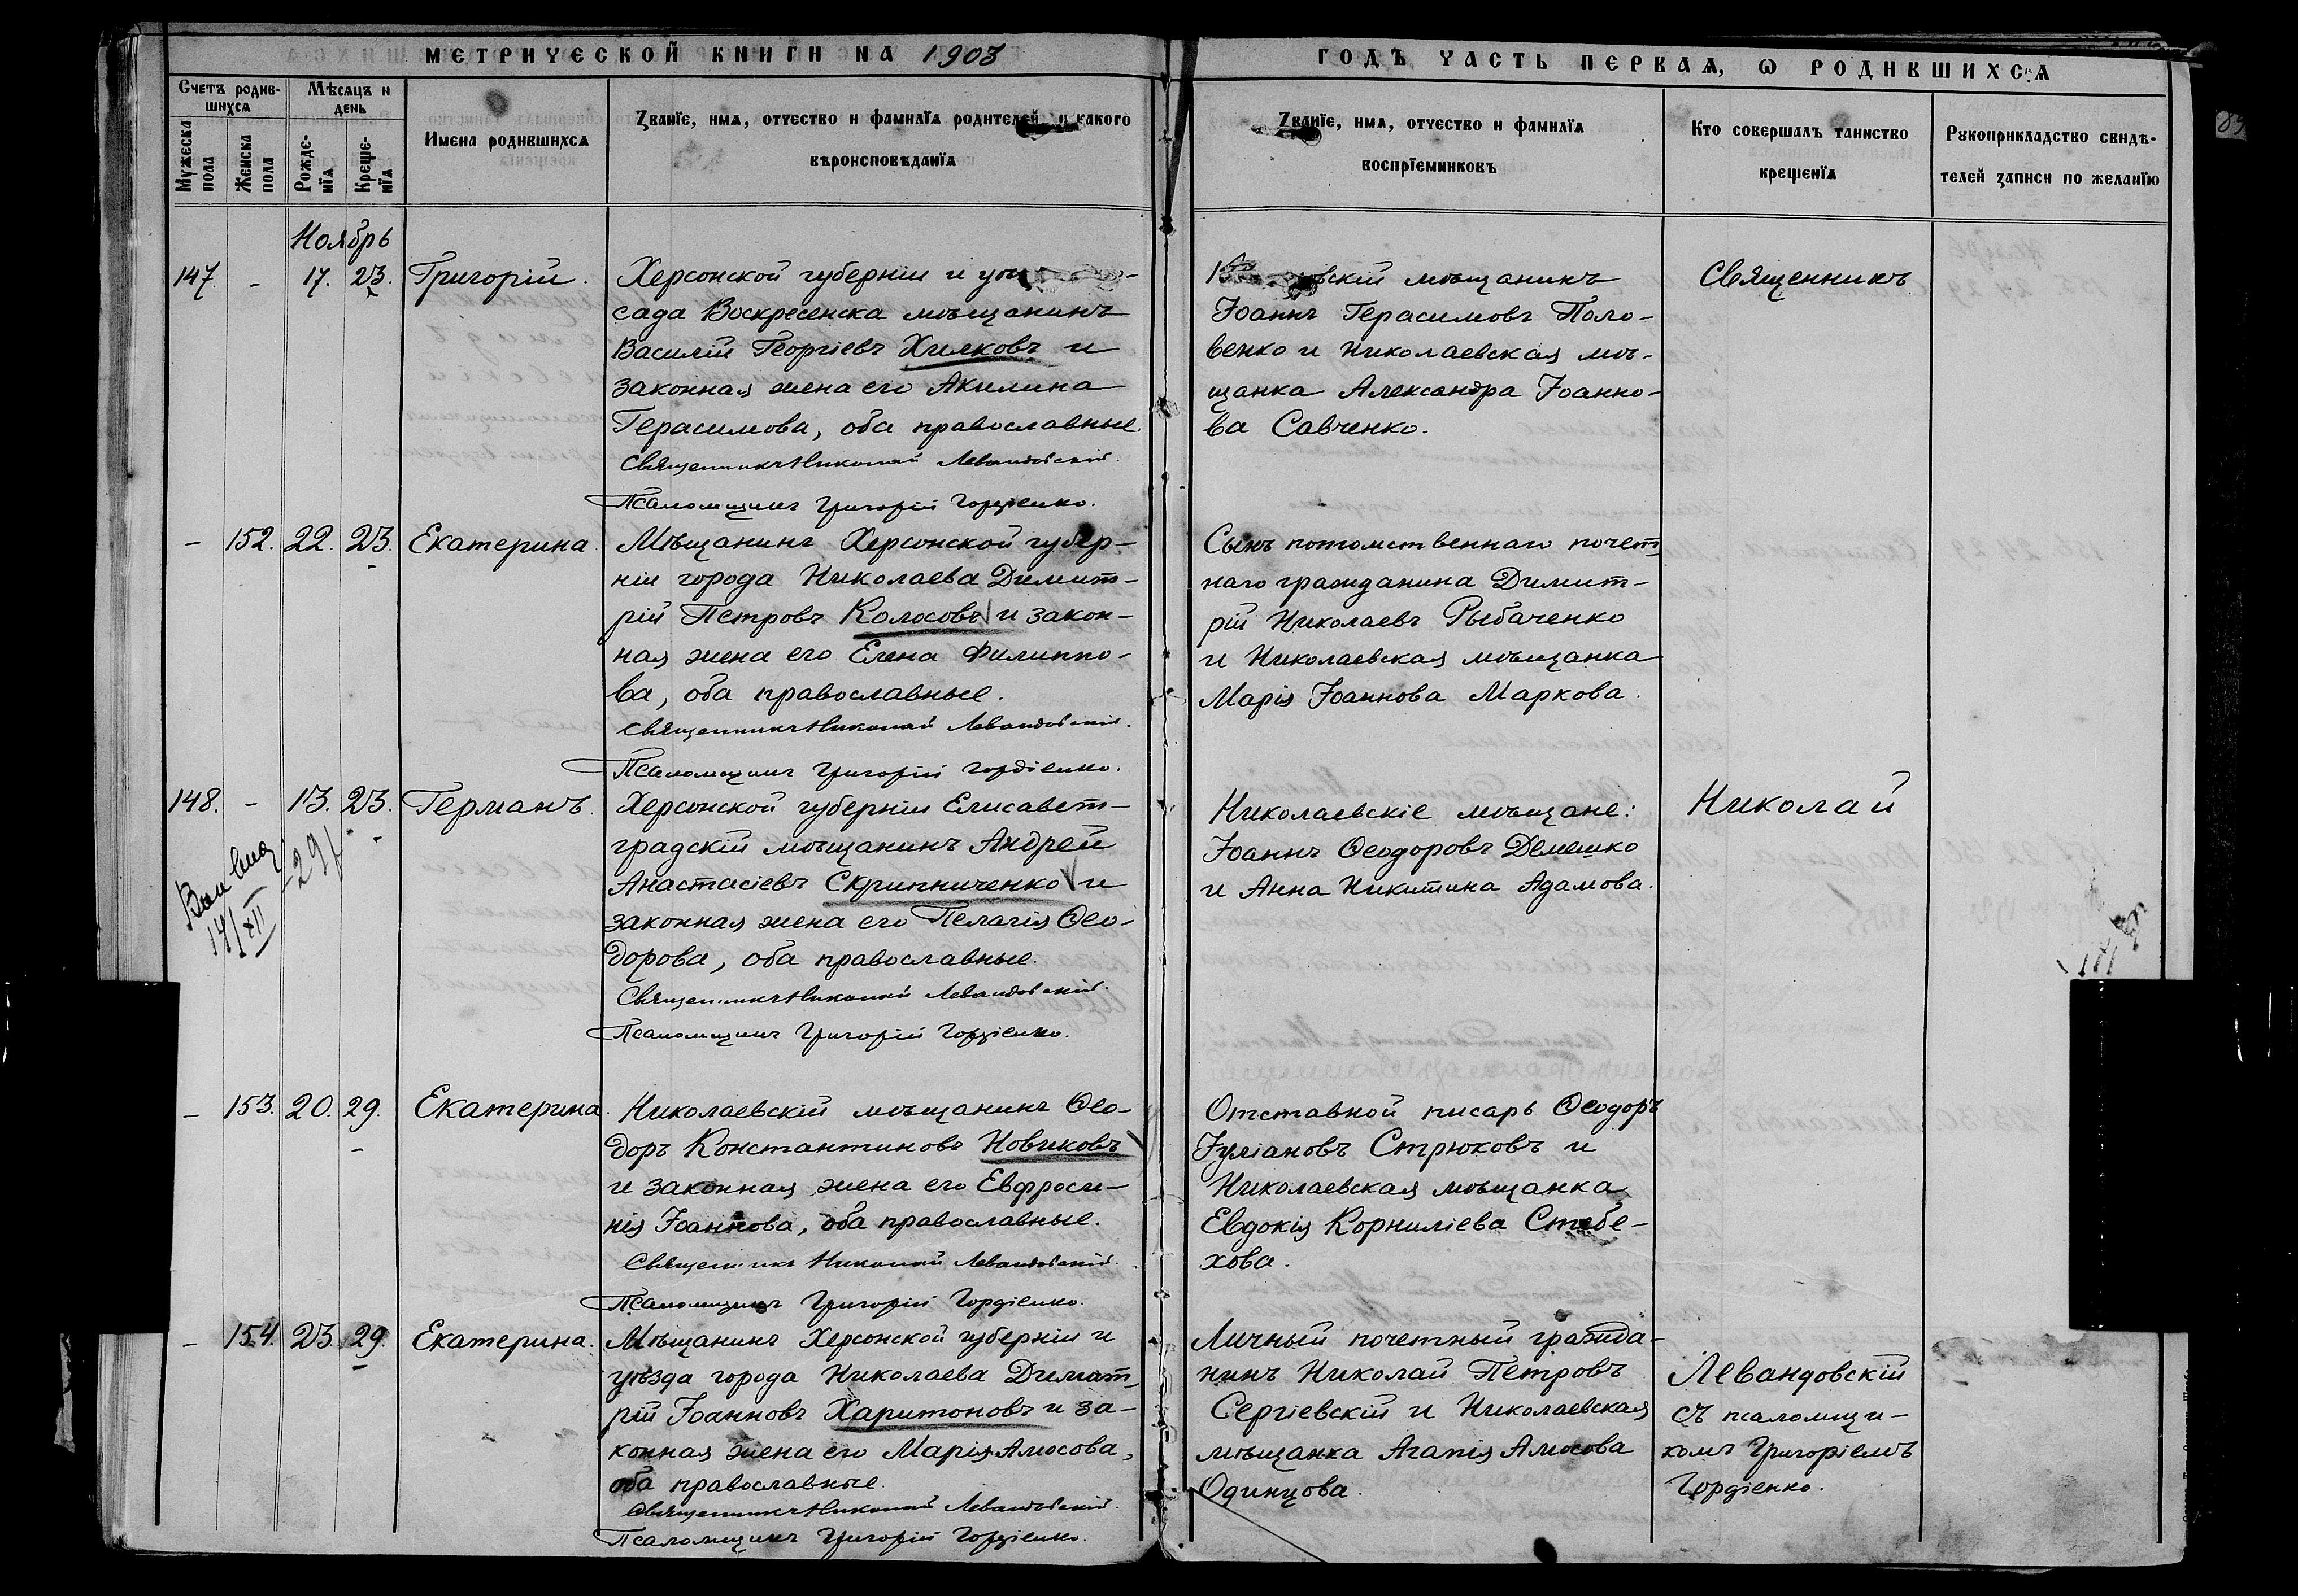 МЕТРИЧЕСКОЙ КНИГИ НА 1903
ГОДЪ ЧАСТЬ ПЕРВАѦ, Ѡ РОДИВШИХСѦ
Счетъ родив-
шихсѧ
Мѣсѧцъ и
день
Мꙋжеска
пола
Женска
пола
Рожде-
нїѧ
Креще-
нїѧ
Имена родившихсѧ
Званїе, имѧ, отчество и фамилїѧ родителей, и какого
вѣроисповѣданїѧ
Званїе, имѧ, отчество и фамилїѧ
воспрїемниковъ
Кто совершалъ таинство
крещенїѧ
Рꙋкоприкладство свидѣ-
телей записи по желанїю
Ноябрь
147. - 17. 23. Григорій.
Херсонской губерніи и
сада Воскресенска мѣщанинъ
Василій Георгіевъ Хилковъ и
законная жена его Акилина
Герасимова, оба православные.
Священникъ Николай Левандовскій.
Псаломщикъ Григорій Гордіенко.
мѣщаникъ
Іоаннъ Герасимовъ Поло-
венко и Николаевская мѣ-
щанка Александра Іоанно-
ва Савченко.
Священникъ
- 152. 22. 23. Екатерина.
Мѣщанинъ Херсонской губер-
ніи города Николаева Димит-
рій Петровъ Колосовъ и закон-
ная жена его Елена Филиппо-
ва, оба православные.
Священникъ Николай Левандовскій.
Псаломщикъ Григорій Гордіенко.
Сынъ потомственнаго почет-
наго гражданина Димит-
рій Николаевъ Рыбаченко
и Николаевская мѣщанка
Марія Іоаннова Маркова.
148. - 13. 23. Германъ.
14/XII
Херсонской губерніи Елисавет-
градскій мѣщанинъ Андрей
Анастасіевъ Скрипниченко и
законная жена его Пелагія Ѳео-
дорова, оба православные.
Священникъ Николай Левандовскій.
Псаломщикъ Григорій Гордіенко.
Николаевскіе мѣщане:
Іоаннъ Ѳеодоровъ Демешко
и Анна Никитина Адамова.
Николай
- 153. 20. 29. Екатерина.
Николаевскій мѣщанинъ Ѳео-
доръ Константиновъ Новиковъ
и законная жена его Евфроси-
нія Іоаннова, оба православные.
Священникъ Николай Левандовскій.
Псаломщикъ Григорій Гордіенко.
Отставной писарь Ѳеодоръ
Іуліановъ Стрюковъ и
Николаевская мѣщанка
Евдокія Корниліева
хова.
- 154. 23. 29. Екатерина.
Мѣщанинъ Херсонской губерніи и
уѣзда города Николаева Димит-
рій Іоанновъ Харитоновъ и за-
конная жена его Марія Амосова,
оба православные.
Священникъ Николай Левандовскій.
Псаломщикъ Григорій Гордіенко.
Личный почетный гражда-
нинъ Николай Петровъ
Сергіевскій и Николаевская
мѣщанка Агапія Амосова
Одинцова.
Левандовскій
съ псаломщи-
комъ Григоріемъ
Гордіенко.